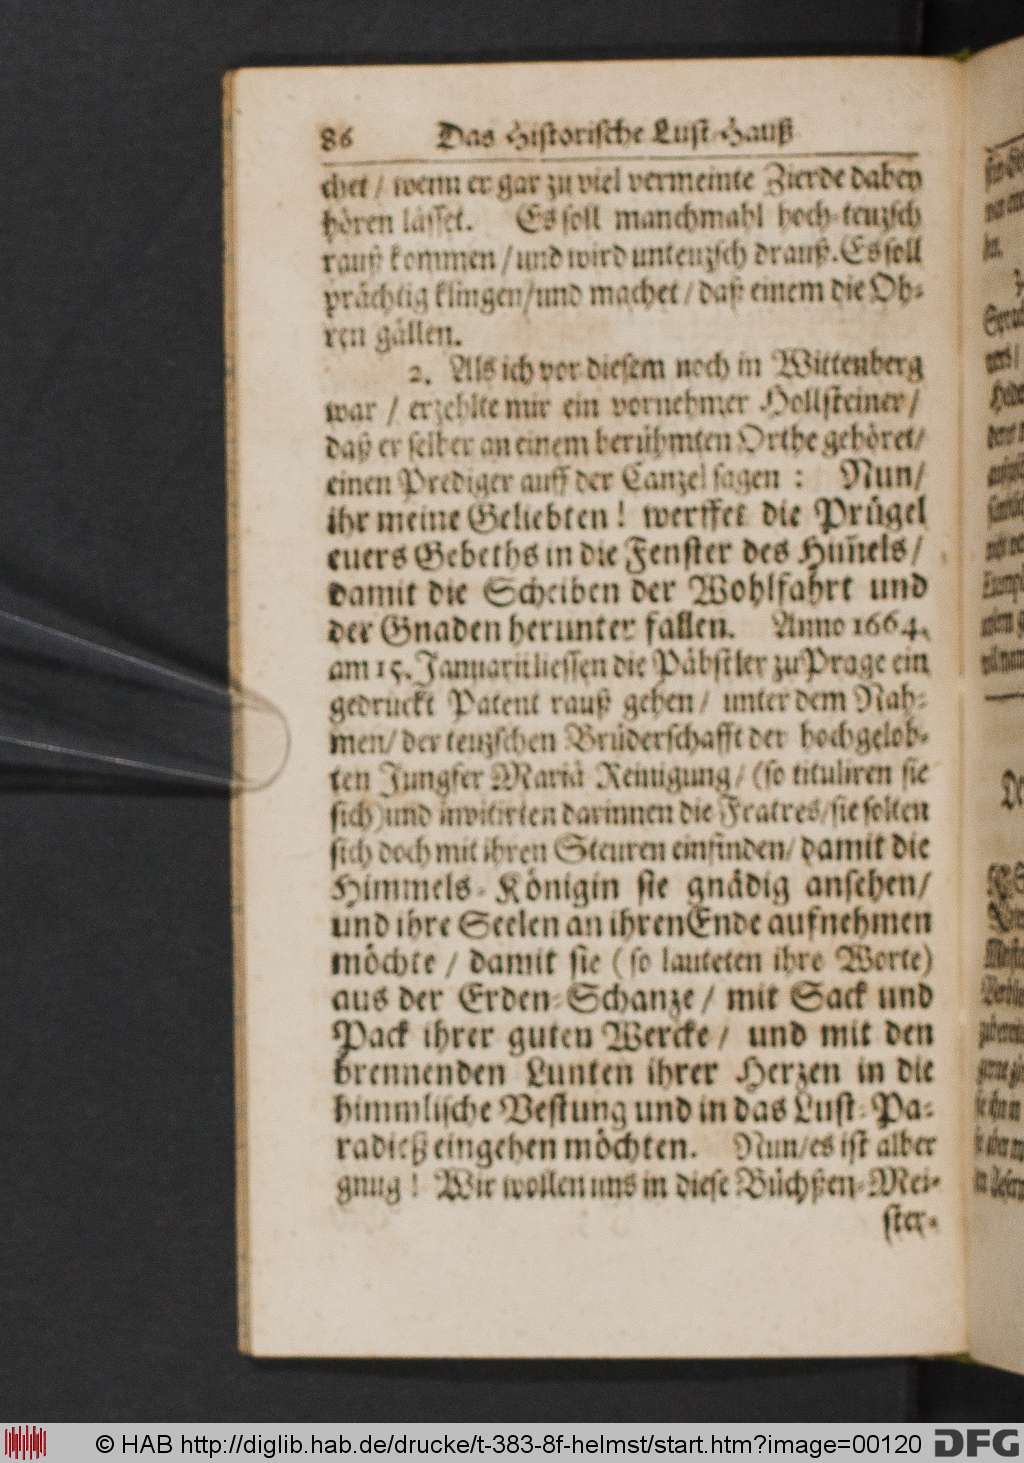 86 Das Historische Lust-Hauß
chet / wenn er gar zu viel vermeinte Zierde dabey
hören lässet. Es soll manchmahl hoch-teuzsch
rauß kommen / und wird unteuzsch drauß. Es soll
prächtig klingen / und machet / daß einem die Oh-
ren gällen.
2. Als ich vor diesem noch in Wittenberg
war / erzehlte mir ein vornehmer Hollsteiner /
daß er selber an einem berühmten Orthe gehöret /
einen Prediger auff der Canzel sagen : Nun /
ihr meine Geliebten ! werffet die Prügel
euers Gebeths in die Fenster des Hum̃els /
damit die Scheiben der Wohlfahrt und
der Gnaden herunter fallen. Anno 1664.
am 15. Januarii liessen die Päbstler zu Prage ein
gedruckt Patent rauß gehen / unter dem Nah-
men / der teuzschen Brüderschafft der hochgelob-
ten Jungfer Mariä Reinigung / (so tituliren sie
sich) und invitirten darinnen die Fratres / sie solten
sich doch mit ihren Steuren einfinden / damit die
Himmels-Königin sie gnädig ansehen /
und ihre Seelen an ihren Ende aufnehmen
möchte / damit sie (so lauteten ihre Worte)
aus der Erden-Schanze / mit Sack und
Pack ihrer guten Wercke / und mit den
brennenden Lunten ihrer Herzen in die
himmlische Vestung und in das Lust-Pa-
radieß eingehen möchten. Nun / es ist alber
gnug ! Wir wollen uns in diese Büchßen-Mei-
ster-
© HAB http://diglib.hab.de/drucke/t-383-8f-helmst/start.htm?image=00120 DFG